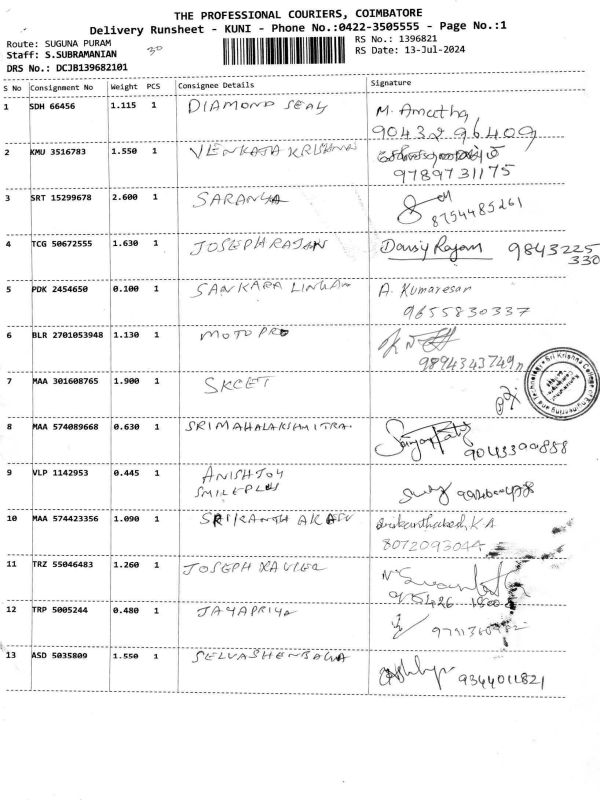 THE PROFESSIONAL COURIERS, COIMBATORE
Delivery Runsheet - KUNI - Phone No.:0422-3505555 - Page No.:1
Route: SUGUNA PURAM
Staff: S.SUBRAMANIAN
30
RS No.: 1396821
RS Date: 13-Jul-2024
DRS No.: DCJB139682101
S No Consignment No Weight PCS Consignee Details Signature
1 SDH 66456 1.115 1 DIAMOND SEALS M. Ameetha,
90432 96409
2 KMU 3516783 1.550 1 VENKATA KRISHNAN
9789731175
3 SRT 15299678 2.600 1 SARANYA
8754485261
4 TCG 50672555 1.630 1 JOSEPH RAJAN Daisy Rajam 9843225
330
5 PDK 2454650 0.100 1 SANKARA LINGAM A. Kumaresan
9655830337
6 BLR 2701053948 1.130 1 MOTO PRO
9894343749
7 MAA 301608765 1.900 1 SKCET
Sri Krishna College of Engineering and Technology
8 MAA 574089668 0.630 1 SRI MAHALAKSHMI TRA.
9043300858
9 VLP 1142953 0.445 1 ANISH JOY
SMILEPLUS
10 MAA 574423356 1.090 1 SRIKANTH AKASH Srikanthakash, K.A
8072093044
11 TRZ 55046483 1.260 1 JOSEPH XAVIER
12 TRP 5005244 0.480 1 JAYAPRIYA
13 ASD 5035809 1.550 1 SELVASHENBAGA
9344011821